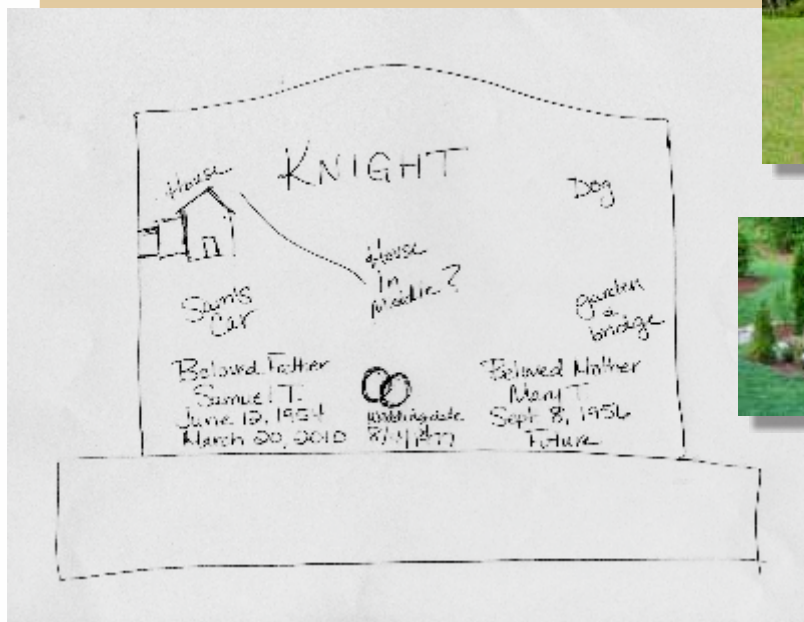 KNIGHT
House
Dog
House
in
Middle?
Sam's
Car
garden
&
bridge
Beloved Father
Samuel T.
June 12, 1954
March 20, 2010
Wedding date
Beloved Mother
Mary T.
Sept 8, 1956
Future